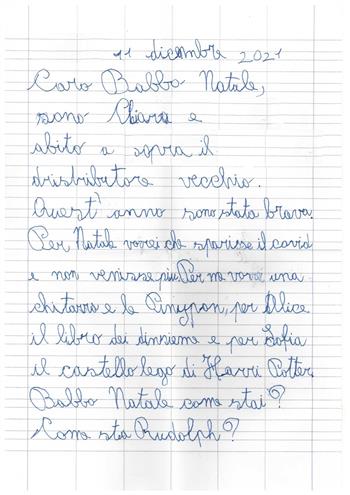 11 dicembre 2021
Caro Babbo Natale,
sono Chiara e
abito a sopra il
dristributore vecchio.
Quest'anno sono stata brava.
Per Natale vorrei che sparisse il covid
e non venisse più. Per me vorrei una
chitarra e le Pinypon, per Alice
il libro dei dinnieme e per Sofia
il castello lego di Harri Potter
Babbo Natale come stai?
Come sta Rudolph?